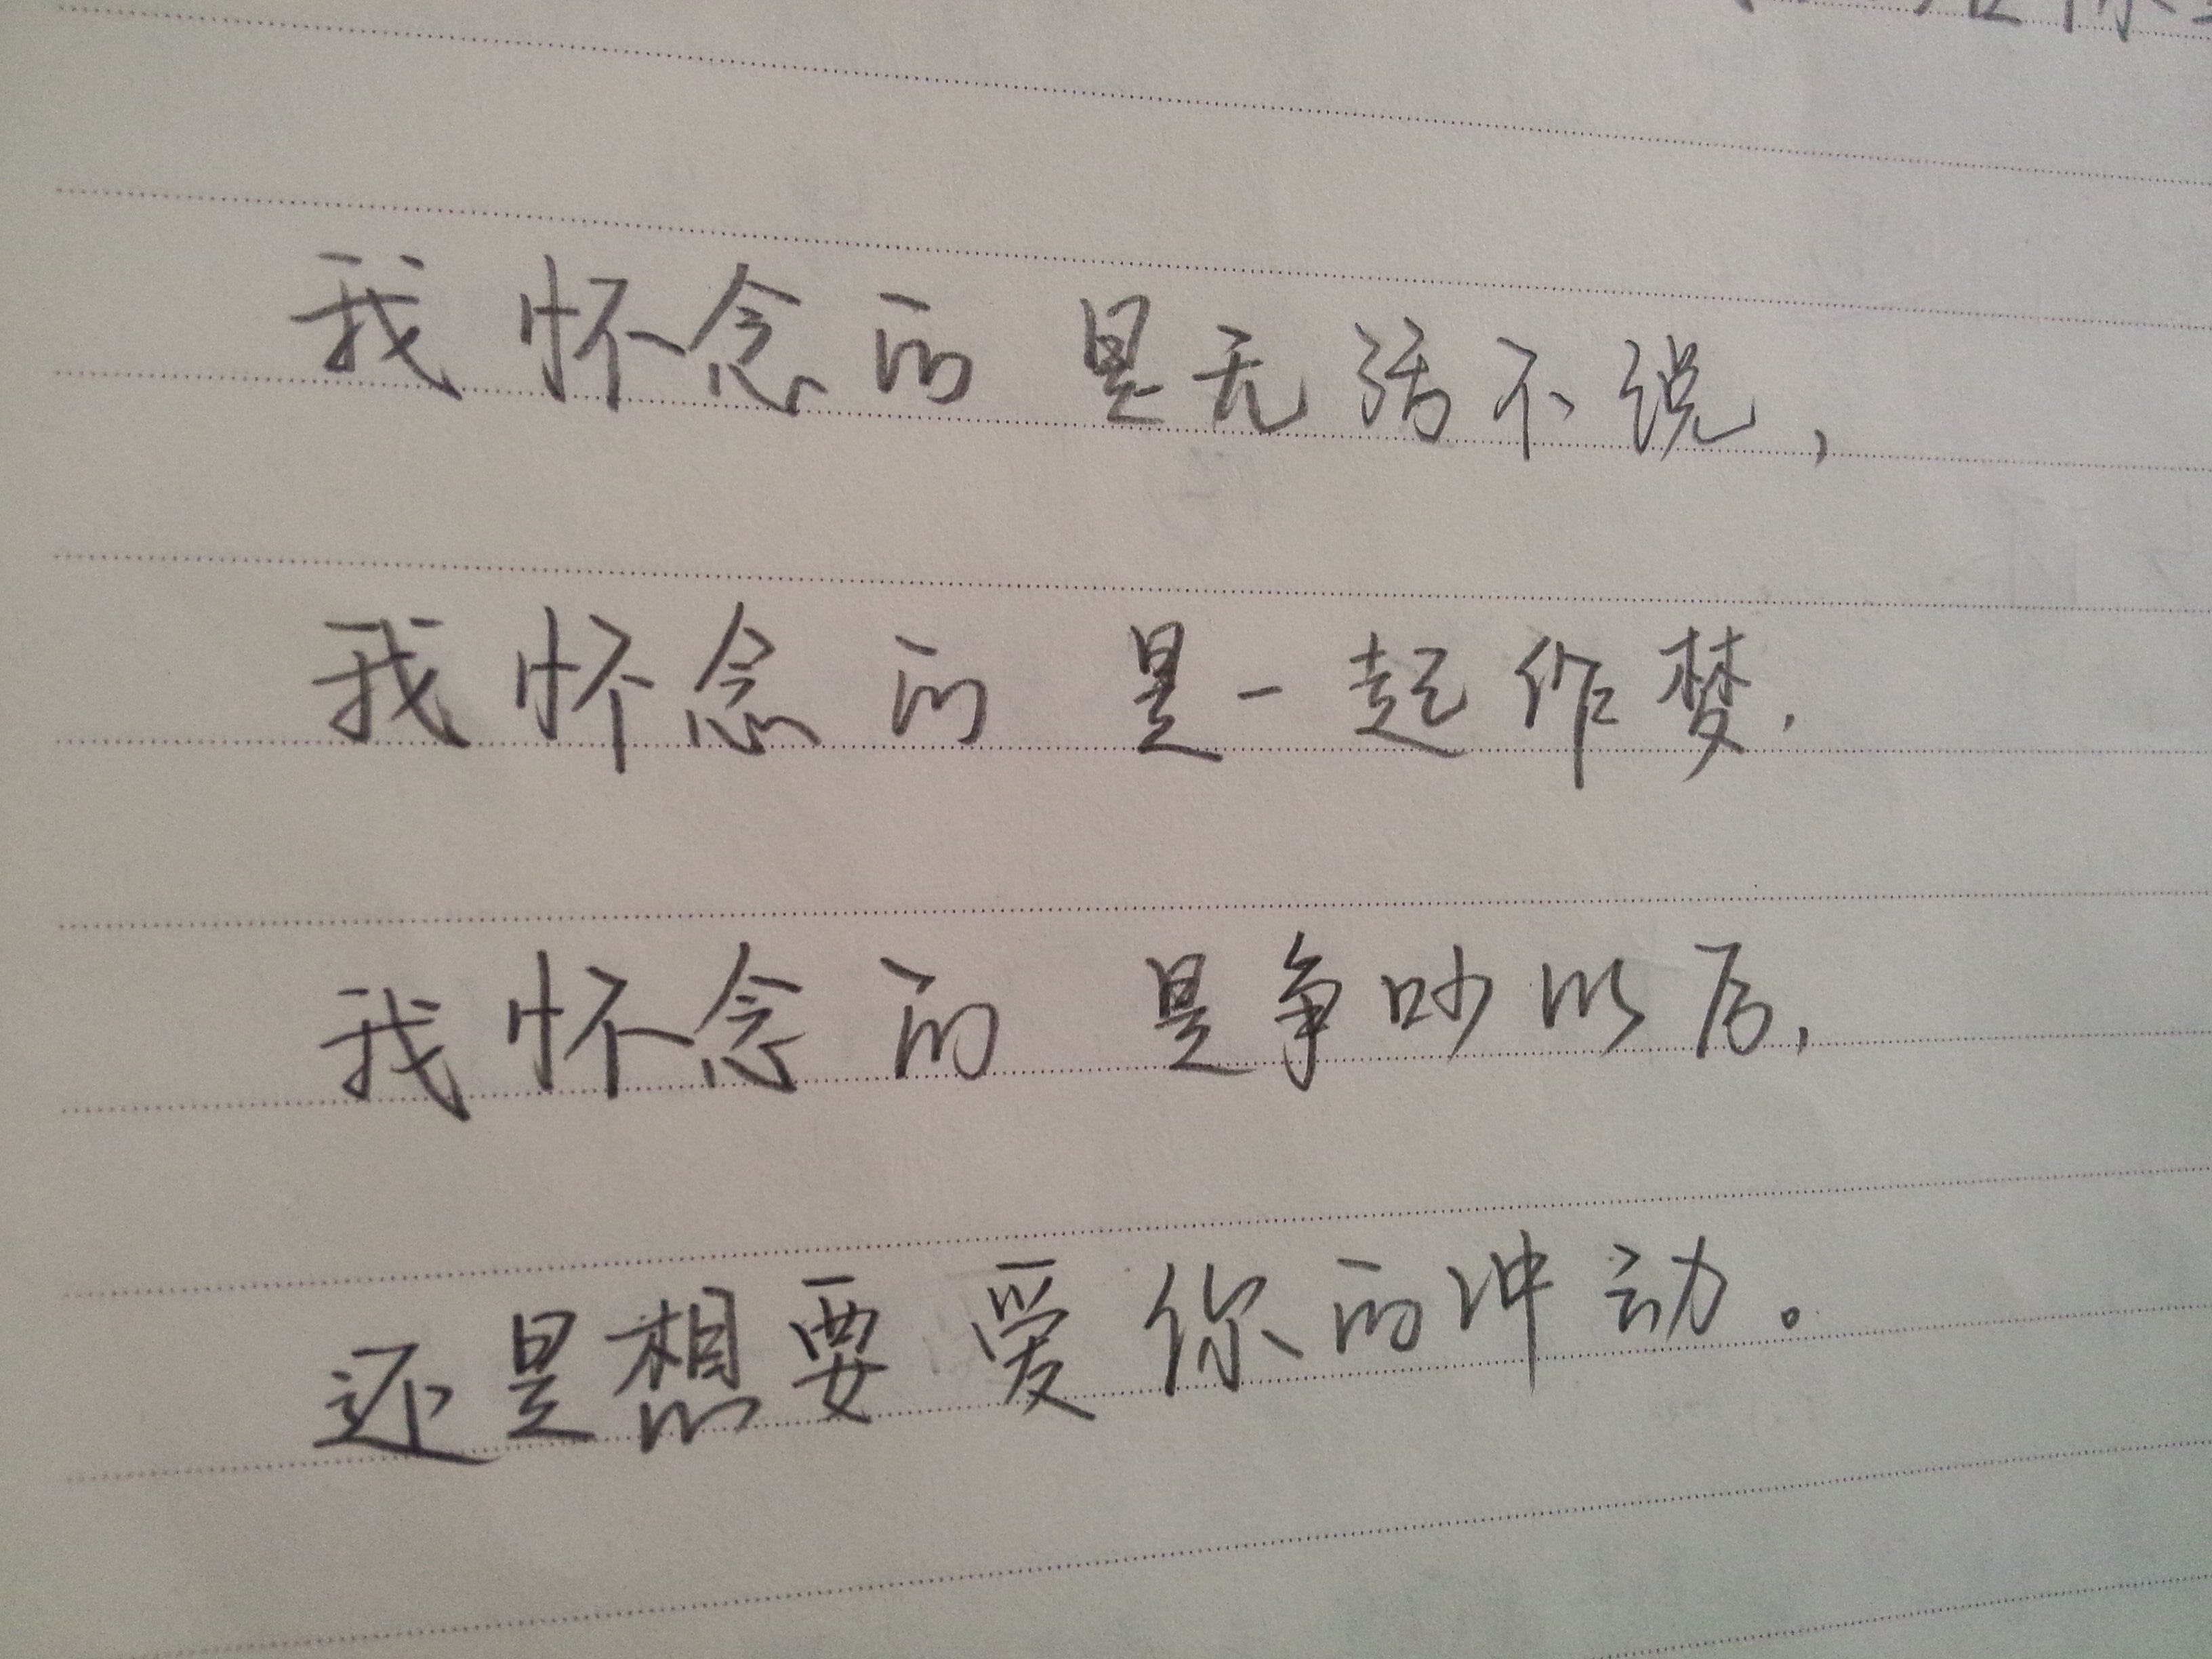 我怀念的 是无话不说，
我怀念的 是一起作梦，
我怀念的 是争吵以后，
还是想要爱你的冲动。